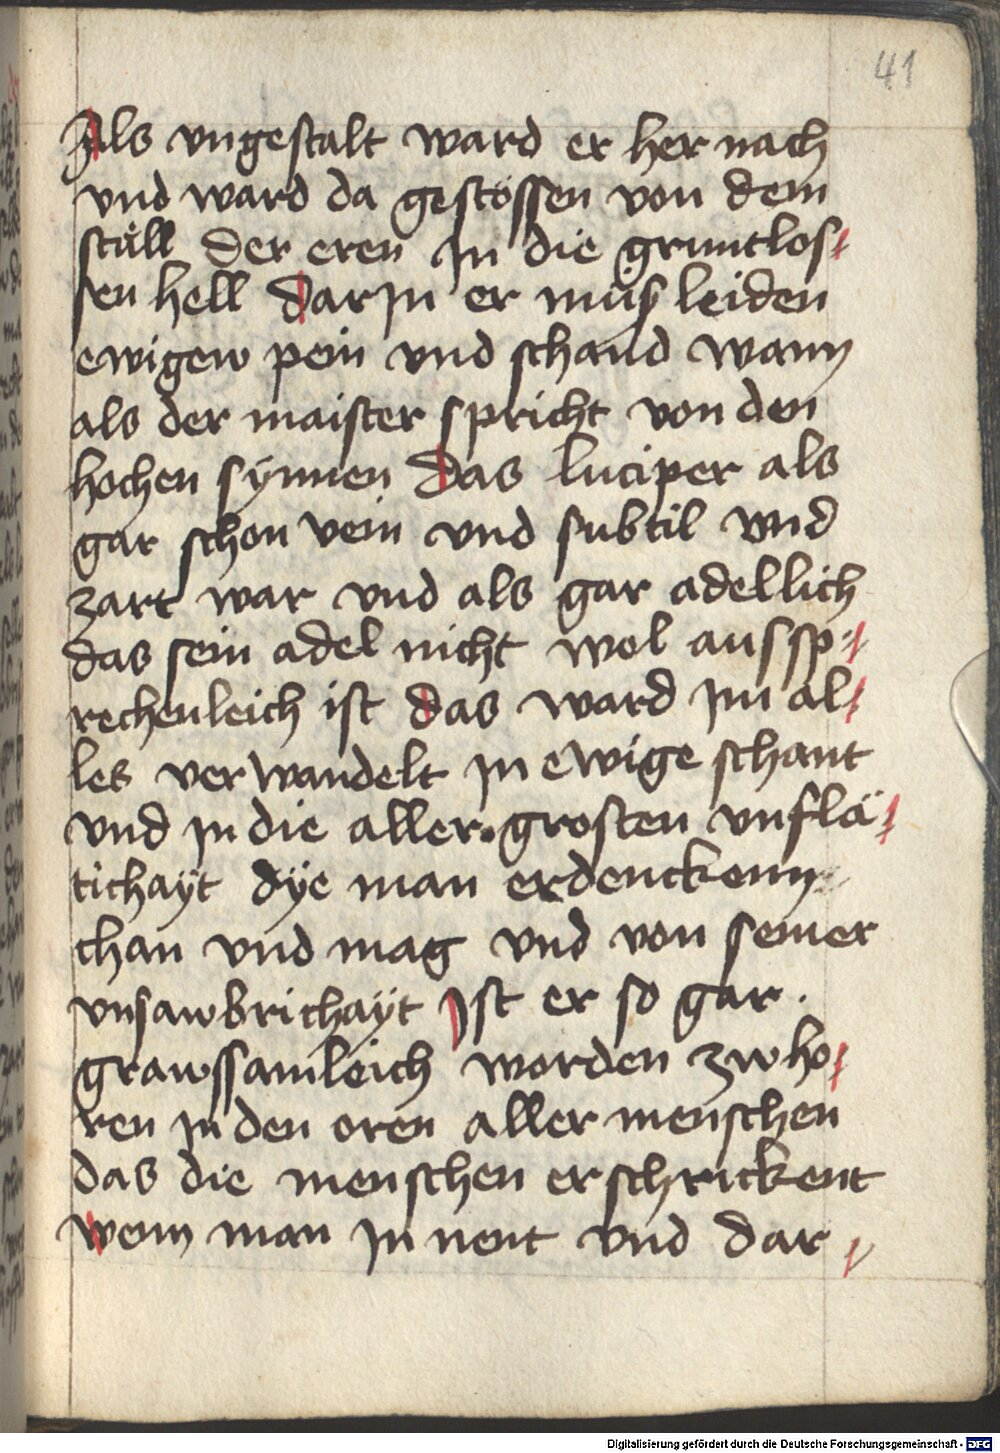 41
Als vngestalt ward er her nach
vnd ward da gestössen von dem
stüll der eren In die gruntlos-
sen hell darJn er müs leiden
ewigew pein vnd schand wann
als der maister spricht von den
hochen sÿnnen das luciper als
gar schon vein vnd subtil vnd
zart war vnd als gar adellich
das sein adel nicht wol aussp-
rechenleich ist das ward Jm al-
les verwandelt Jn ewige schant
vnd Jn die aller grosten vnflä-
tichaÿt dÿe man erdenckenn
chan vnd mag vnd von seiner
vnsawbrichaÿt Jst er so gar
grawssamleich worden zw ho-
ren Jn den oren aller menschen
das die menschen erschrickent
wenn man Jn nent vnd dar
Digitalisierung gefördert durch die Deutsche Forschungsgemeinschaft - DFG